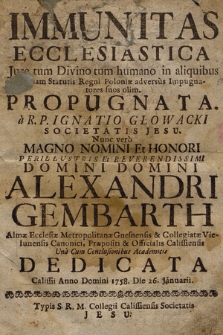 IMMUNITAS
ECCLESIASTICA
Jure tum Divino tum humano in aliquibus
quam Statutis Regni Poloniæ adversùs Impugna-
tores suos olim.
PROPUGNATA.
à R.P. IGNATIO GŁOWACKI
SOCIETATIS JESU.
Nunc verò
MAGNO NOMINI Et HONORI
PERILLUSTRIS Et REVERENDISSIMI
DOMINI DOMINI
ALEXANDRI
GEMBARTH
Almæ Ecclesiæ Metropolitanæ Gnesnensis & Collegiatæ Vie-
lunensis Canonici, Præpositi & Officialis Calissiensis
Unà Cum Conclusionibus Academicis
DEDICATA
Calissii Anno Domini 1758. Die 26. Januarii.
Typis S R. M. Collegii Calissiensis Societatis
JESU.